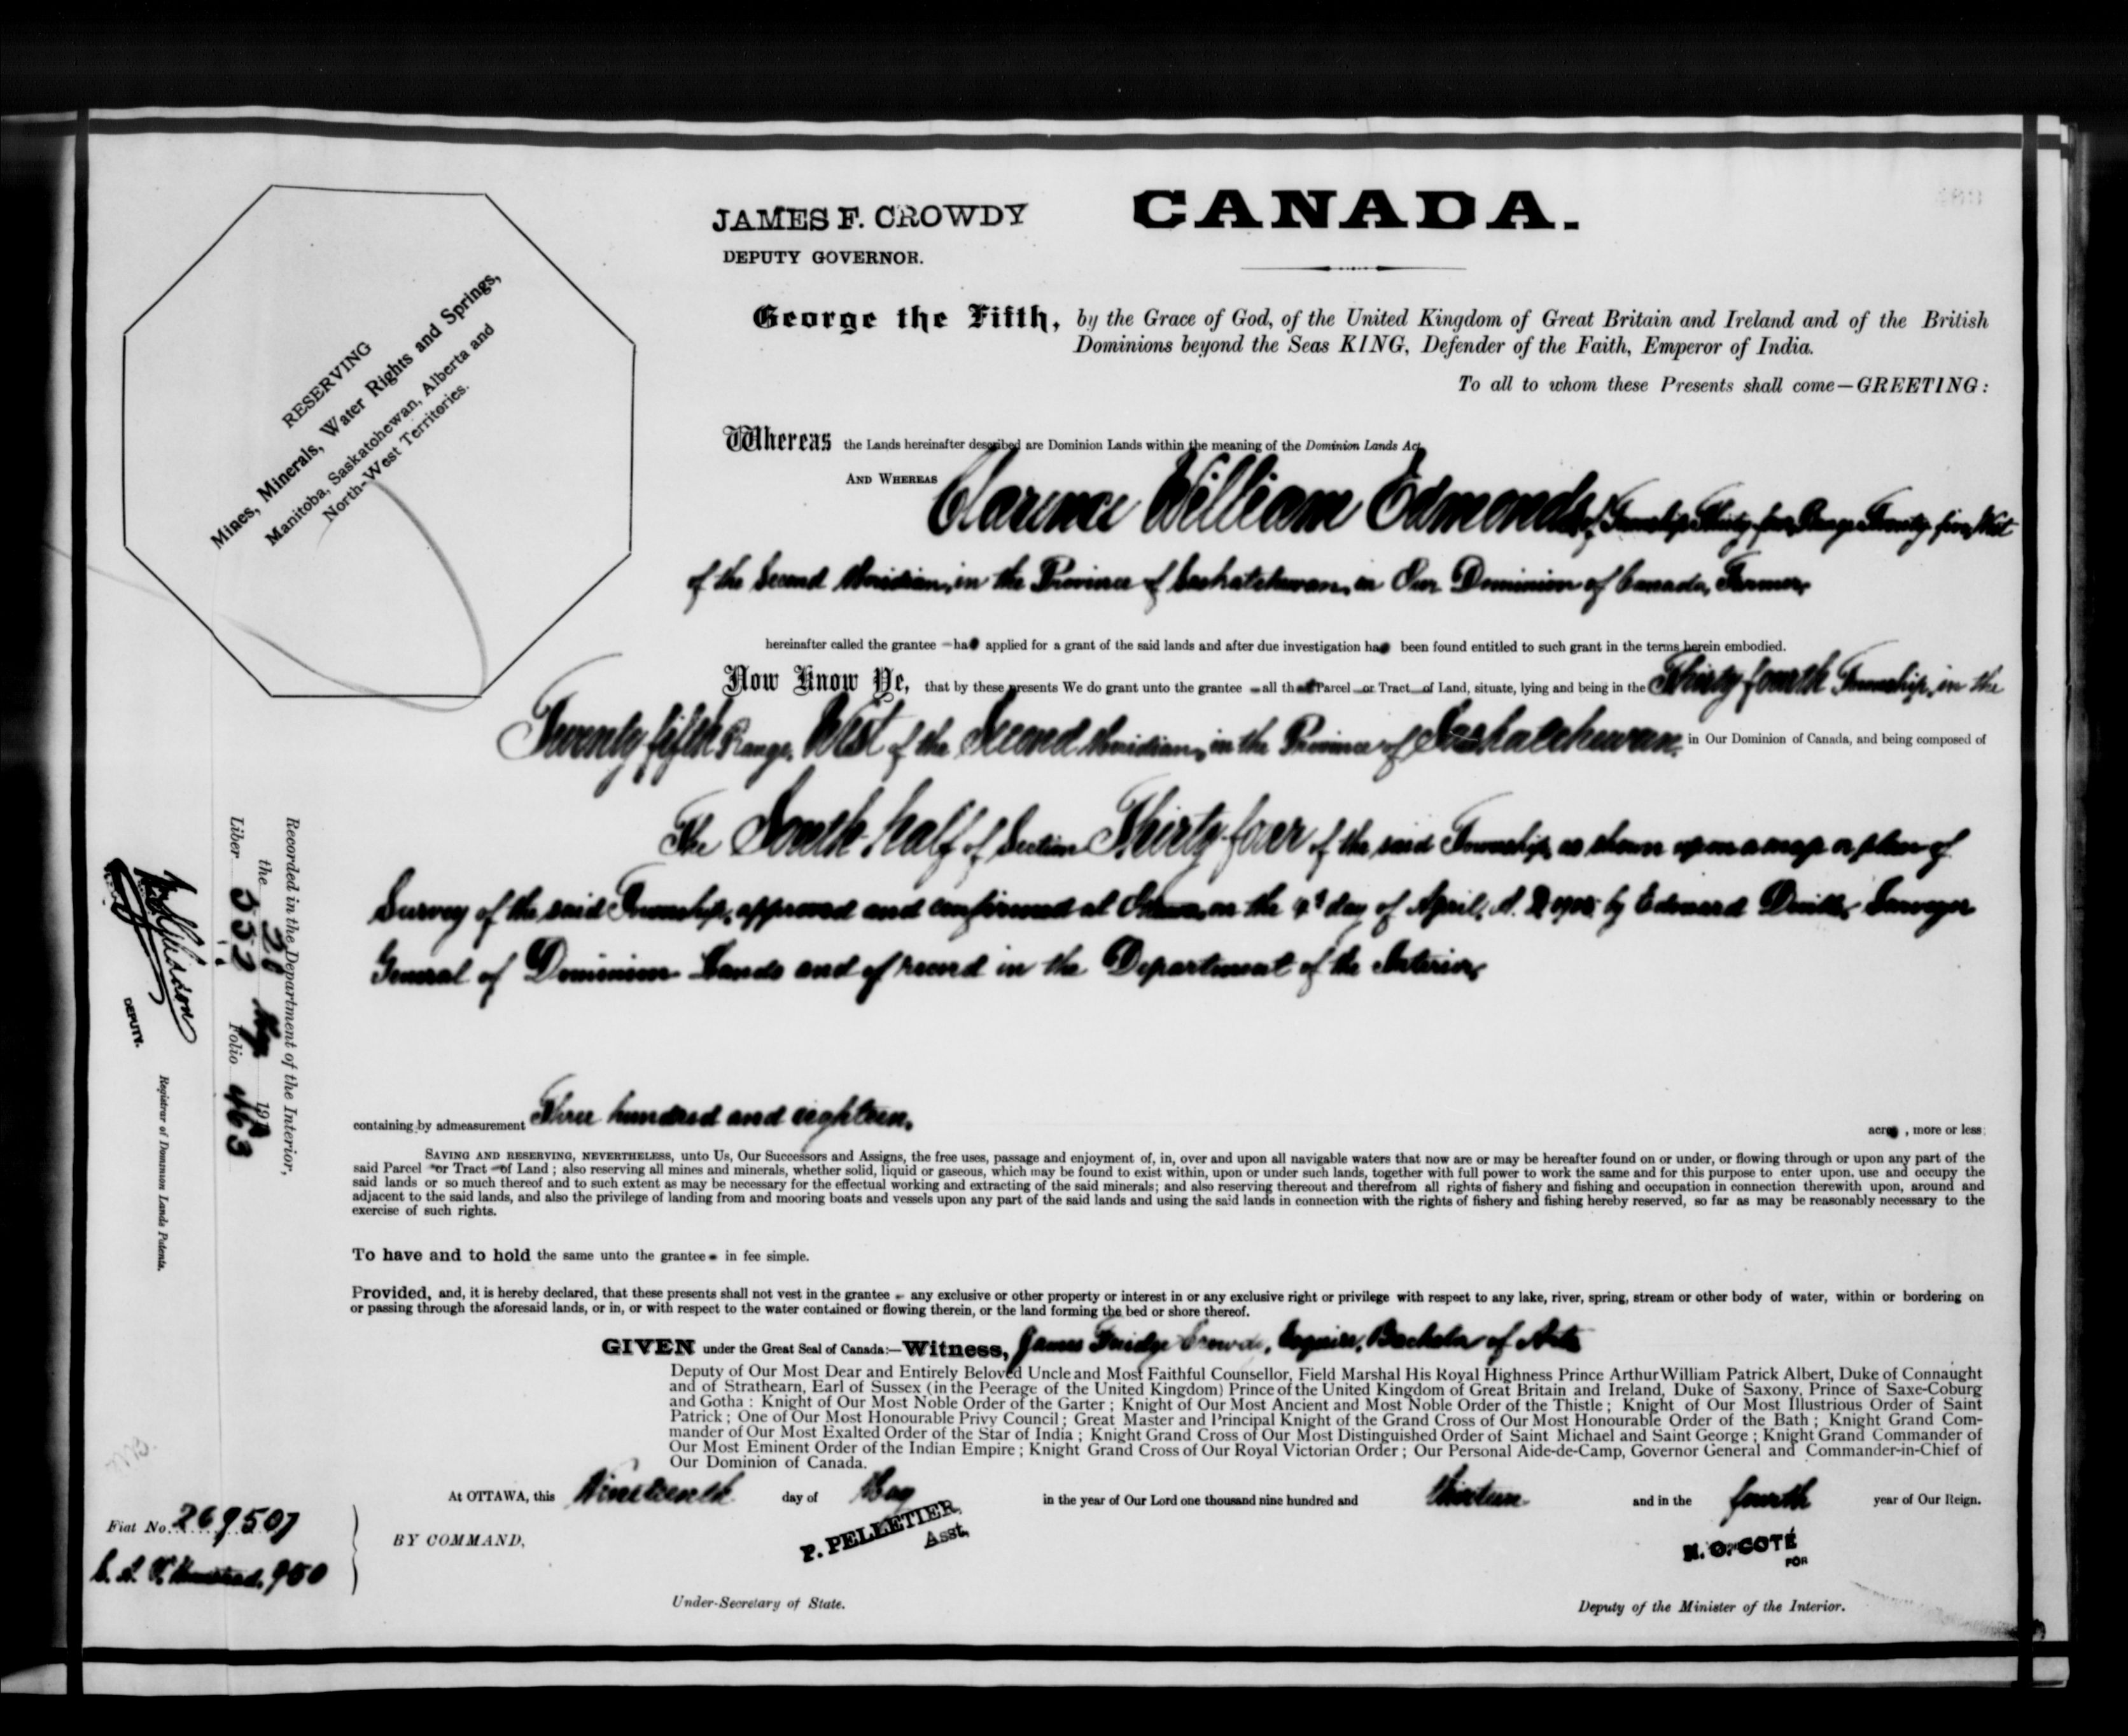 CANADA.
JAMES F. CROWDY
DEPUTY GOVERNOR.
RESERVING
Mines, Minerals, Water Rights and Springs,
Manitoba, Saskatchewan, Alberta and
North-West Territories.
George the Fifth, by the Grace of God, of the United Kingdom of Great Britain and Ireland and of the British
Dominions beyond the Seas KING, Defender of the Faith, Emperor of India.
To all to whom these Presents shall come—GREETING:
Whereas the Lands hereinafter described are Dominion Lands within the meaning of the Dominion Lands Act,
AND WHEREAS Clarence William Edmonds of Township Thirty-four, Range Twenty-five, West
of the Second Meridian, in the Province of Saskatchewan, in Our Dominion of Canada, Farmer,
hereinafter called the grantee has applied for a grant of the said lands and after due investigation has been found entitled to such grant in the terms herein embodied.
Now Know Ye, that by these presents We do grant unto the grantee all that Parcel or Tract of Land, situate, lying and being in the Thirty-fourth Township, in the
Twenty-fifth Range, West of the Second Meridian, in the Province of Saskatchewan, in Our Dominion of Canada, and being composed of
The South half of Section Thirty-four of the said Township, as shown upon a map or plan of
Survey of the said Township, approved and confirmed at Ottawa, on the day of April, A. D. by Edouard Deville, Surveyor
General of Dominion Lands and of record in the Department of the Interior,
containing by admeasurement Three hundred and eighteen, acres, more or less;
SAVING AND RESERVING, NEVERTHELESS, unto Us, Our Successors and Assigns, the free uses, passage and enjoyment of, in, over and upon all navigable waters that now are or may be hereafter found on or under, or flowing through or upon any part of the
said Parcel or Tract of Land; also reserving all mines and minerals, whether solid, liquid or gaseous, which may be found to exist within, upon or under such lands, together with full power to work the same and for this purpose to enter upon, use and occupy the
said lands or so much thereof and to such extent as may be necessary for the effectual working and extracting of the said minerals; and also reserving thereout and therefrom all rights of fishery and fishing and occupation in connection therewith upon, around and
adjacent to the said lands, and also the privilege of landing from and mooring boats and vessels upon any part of the said lands and using the said lands in connection with the rights of fishery and fishing hereby reserved, so far as may be reasonably necessary to the
exercise of such rights.
To have and to hold the same unto the grantee in fee simple.
Provided, and, it is hereby declared, that these presents shall not vest in the grantee any exclusive or other property or interest in or any exclusive right or privilege with respect to any lake, river, spring, stream or other body of water, within or bordering on
or passing through the aforesaid lands, or in, or with respect to the water contained or flowing therein, or the land forming the bed or shore thereof.
GIVEN under the Great Seal of Canada:—Witness, James Crowdy, Esquire, Bachelor of Arts
Deputy of Our Most Dear and Entirely Beloved Uncle and Most Faithful Counsellor, Field Marshal His Royal Highness Prince Arthur William Patrick Albert, Duke of Connaught
and of Strathearn, Earl of Sussex (in the Peerage of the United Kingdom) Prince of the United Kingdom of Great Britain and Ireland, Duke of Saxony, Prince of Saxe-Coburg
and Gotha: Knight of Our Most Noble Order of the Garter; Knight of Our Most Ancient and Most Noble Order of the Thistle; Knight of Our Most Illustrious Order of Saint
Patrick; One of Our Most Honourable Privy Council; Great Master and Principal Knight of the Grand Cross of Our Most Honourable Order of the Bath; Knight Grand Com-
mander of Our Most Exalted Order of the Star of India; Knight Grand Cross of Our Most Distinguished Order of Saint Michael and Saint George; Knight Grand Commander of
Our Most Eminent Order of the Indian Empire; Knight Grand Cross of Our Royal Victorian Order; Our Personal Aide-de-Camp, Governor General and Commander-in-Chief of
Our Dominion of Canada.
At OTTAWA, this Nineteenth day of May in the year of Our Lord one thousand nine hundred and thirteen and in the fourth year of Our Reign.
BY COMMAND,
P. PELLETIER,
Asst.
Under-Secretary of State.
N. O. COTÉ
FOR
Deputy of the Minister of the Interior.
Recorded in the Department of the Interior,
the May 191
Liber 552 Folio 463
DEPUTY.
Registrar of Dominion Lands Patents.
Fiat No. 269507
950